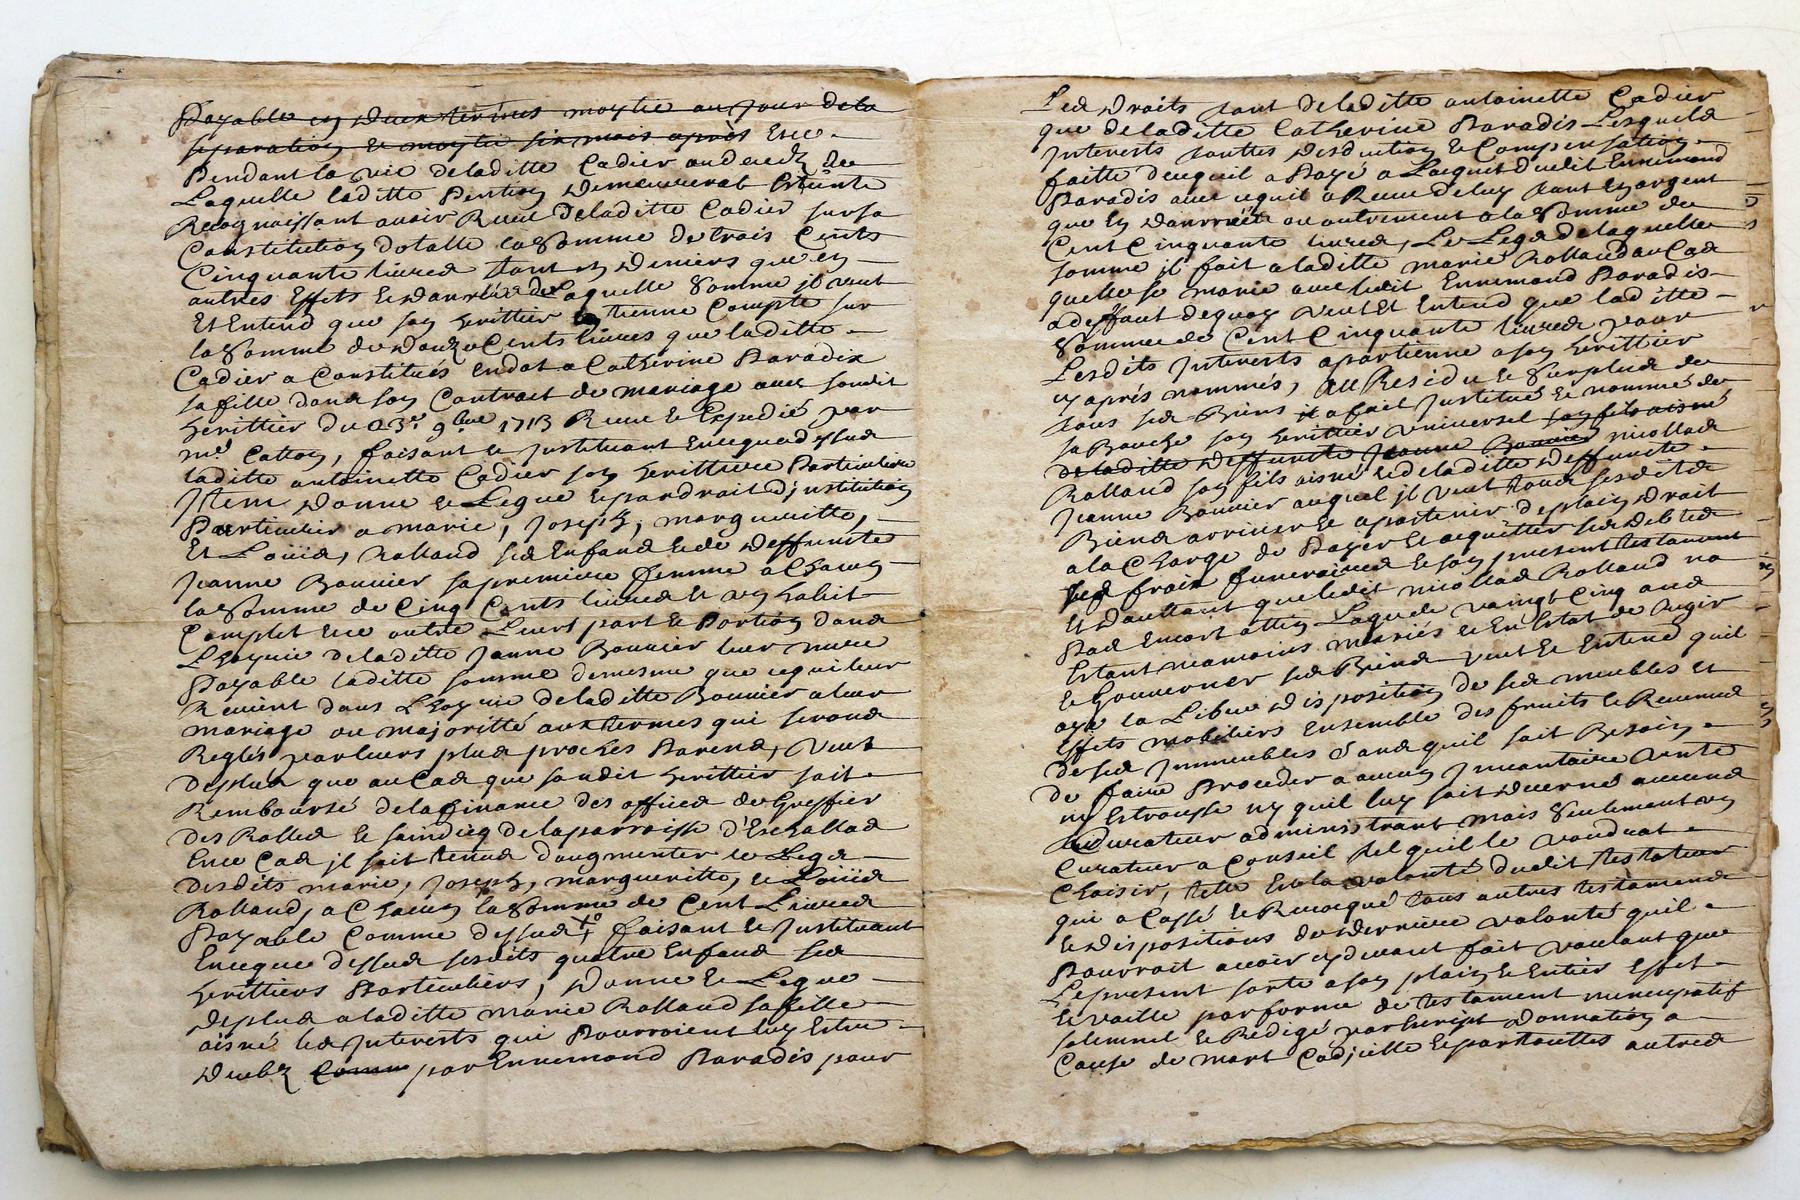 Payable en deux termes moytie au jour dela
separation et moytie six mois après Et ce
Pendant la vie deladitte Cadier au deces de
Laquelle laditte Pention demeurerat Esteinte
Recognaissant avoir Receu deladitte Cadier sursa
Constitution dotalle la somme de trois Cents
Cinquante livres tant en deniers que en
autres Effets et danrées de Laquelle somme jl veut
Et Entend que son herittier tienne Compte sur
la somme de douze Cents livres que laditte
Cadier a Constitués en dot a Catherine Paradix
sa fille dans son Contrat de mariage avec sondit
herittier du 23e 9bre 1713 Receu et Expedié par
me Catton, faisant et justituant en ce que dessus
laditte antoinette Cadier son herittiere Particuliere
Jtem donne et Legue et par droit d'justitution
Particulier a marie, joseph, margueritte,
Et Loüis, Rolland ses Enfans et de deffuncte
Jeanne Bonnier sa premiere femme a Chacun
la somme de Cinq Cents livres et un habit
Complet et ce outre Leurs part et Portion dans
L'hoyrie deladitte Janne Bonnier leur mere
Payable laditte somme demesme que ce qui leur
Revient dans L'hoyrie deladitte Bonnier a leur
mariage ou majoritté aux termes qui serons
Reglés par leurs plus proches Parens, veut
deplus que au Cas que sondit herittier soit
Remboursé dela finance des offices de Greffier
des Rolles et saindicq dela parroisse d'Eschallas
En ce Cas jl soit tenus d'augmenter les Legs
desdits marie, joseph, margueritte, et Loüis
Rolland, a Chacun la somme de Cent Livres
Payable Comme dessus, faisant et justituant
En ce que dessus sesdits quatre Enfans ses
herittiers Particuliers, donne et Legue
deplus a laditte marie Rolland sa fille
aisné les jnterests qui Pourroient luy Estre
deubz Comm par Ennemond Paradis pour
Les droits tant deladitte antoinette Cadier
que deladitte Catherine Paradis Lesquels
jnterests touttes desduction et Compensation
faitte de ce quil a Payé a L'acquit dudit Ennemond
Paradis avec ce quil a Receu de luy tant en argent
que En danrrées ou autrement a la somme de
Cent Cinquante livres, Le Legs de laquelle
somme jl fait a laditte marie Rolland au Cas
quelle se marie avec ledit Ennemond Paradis
a deffaut de quoy veut Et Entend que laditte
somme de Cent Cinquante livres pour
Lesdits jnterests apartienne a son herittier
cy après nommés, au Residu et surplus de
tous ses Biens il a fait justitué et nommé de
sa Bouche son herittier universel son fils aisné
de laditte deffuncte Jeanne Bonnier nicollas
Rolland son fils aisné et de laditte deffuncte
Jeanne Bonnier auquel jl veut tous sesdits
Biens arriver et apartenir de plain droit
a la Charge de Payer et acquitter ses debtes
ses frais funeraires et son present testament
Et d'aultant que ledit nicollas Rolland na
Pas Encort attin Laage de vaingt Cinq ans
Estant neamoins mariés et En Estat de Regir
et Gouverner ses Biens veut et Entend quil
aye la Libre disposition de ses meubles et
Effets mobiliers Ensemble des fruits et Revenus
de ses jmmeubles sans quil soit Besoin
de faire Proceder a aucun jnvantaire vente
ni Estrousse ny quil luy soit decerné aucuns
Curateur administrant mais seulement un
Curateur a Conseil tel quil le voudrat
Choisir, telle Est la volonté dudit testateur
qui a Cassé et Revocqué tous autres testamens
et dispositions de derniere volonté quil
Pourroit avoir cy devant fait voulant que
Le present sorte a son plain et Entier Effet
et vaille par forme de testament nuncupatif
solemnel et Redigé par Escript donnation a
Cause de mort Codjcille et par touttes autres